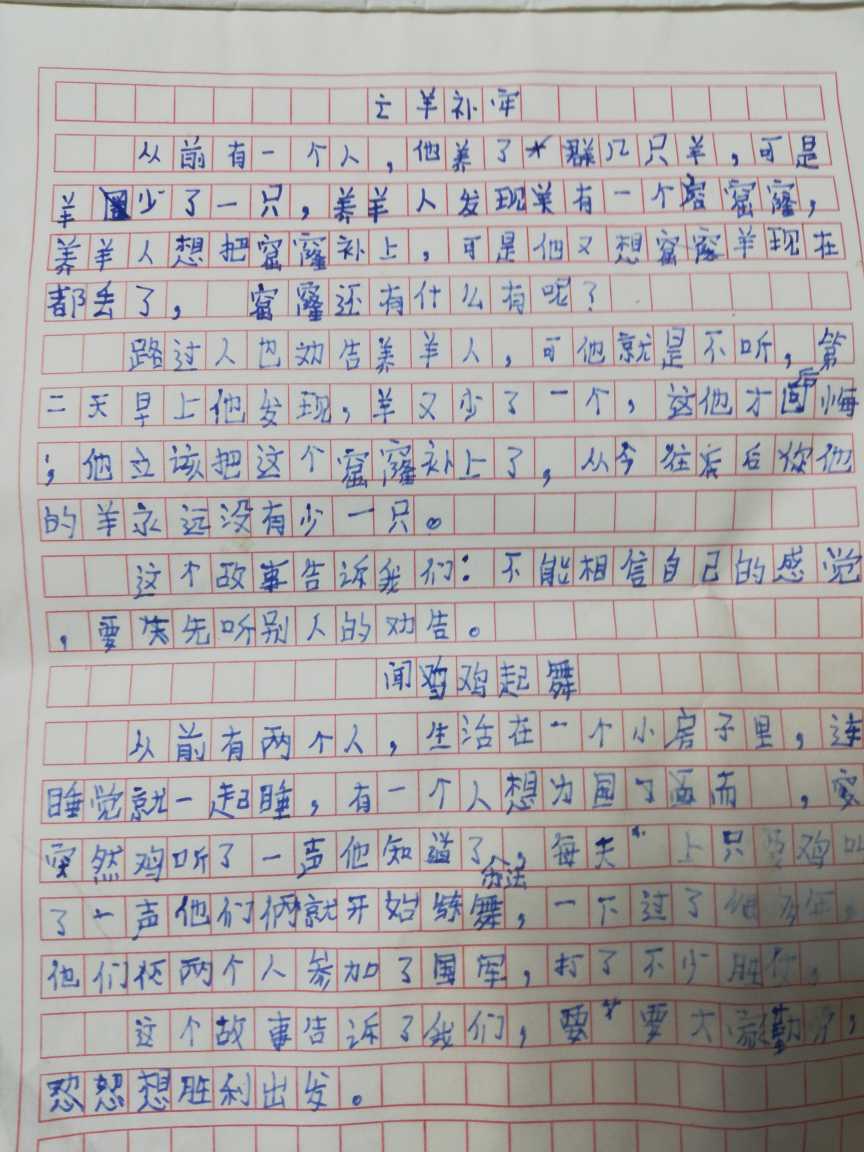 亡羊补牢
从前有一个人，他养了群几只羊，可是
羊少了一只，养羊人发现羊有一个窟窿，
养羊人想把窟窿补上，可是他又想窟窿羊现在
都丢了，窟窿还有什么有呢？
路过人也劝告养羊人，可他就是不听，第
二天早上他发现，羊又少了一个，这他才后悔
，他立该把这个窟窿补上了，从今往后后他
的羊永远没有少一只。
这个故事告诉我们：不能相信自己的感觉
，要先听别人的劝告。
闻鸡鸡起舞
从前有两个人，生活在一个小房子里，连
睡觉就一起睡，有一个人想为国
突然鸡听了一声他知道了，每天上只鸡叫
了一声他们俩就开始练舞，一下过了
他们两个人参加了国军，打了不少胜仗，
这个故事告诉了我们，要要大家勤
想胜利出发。